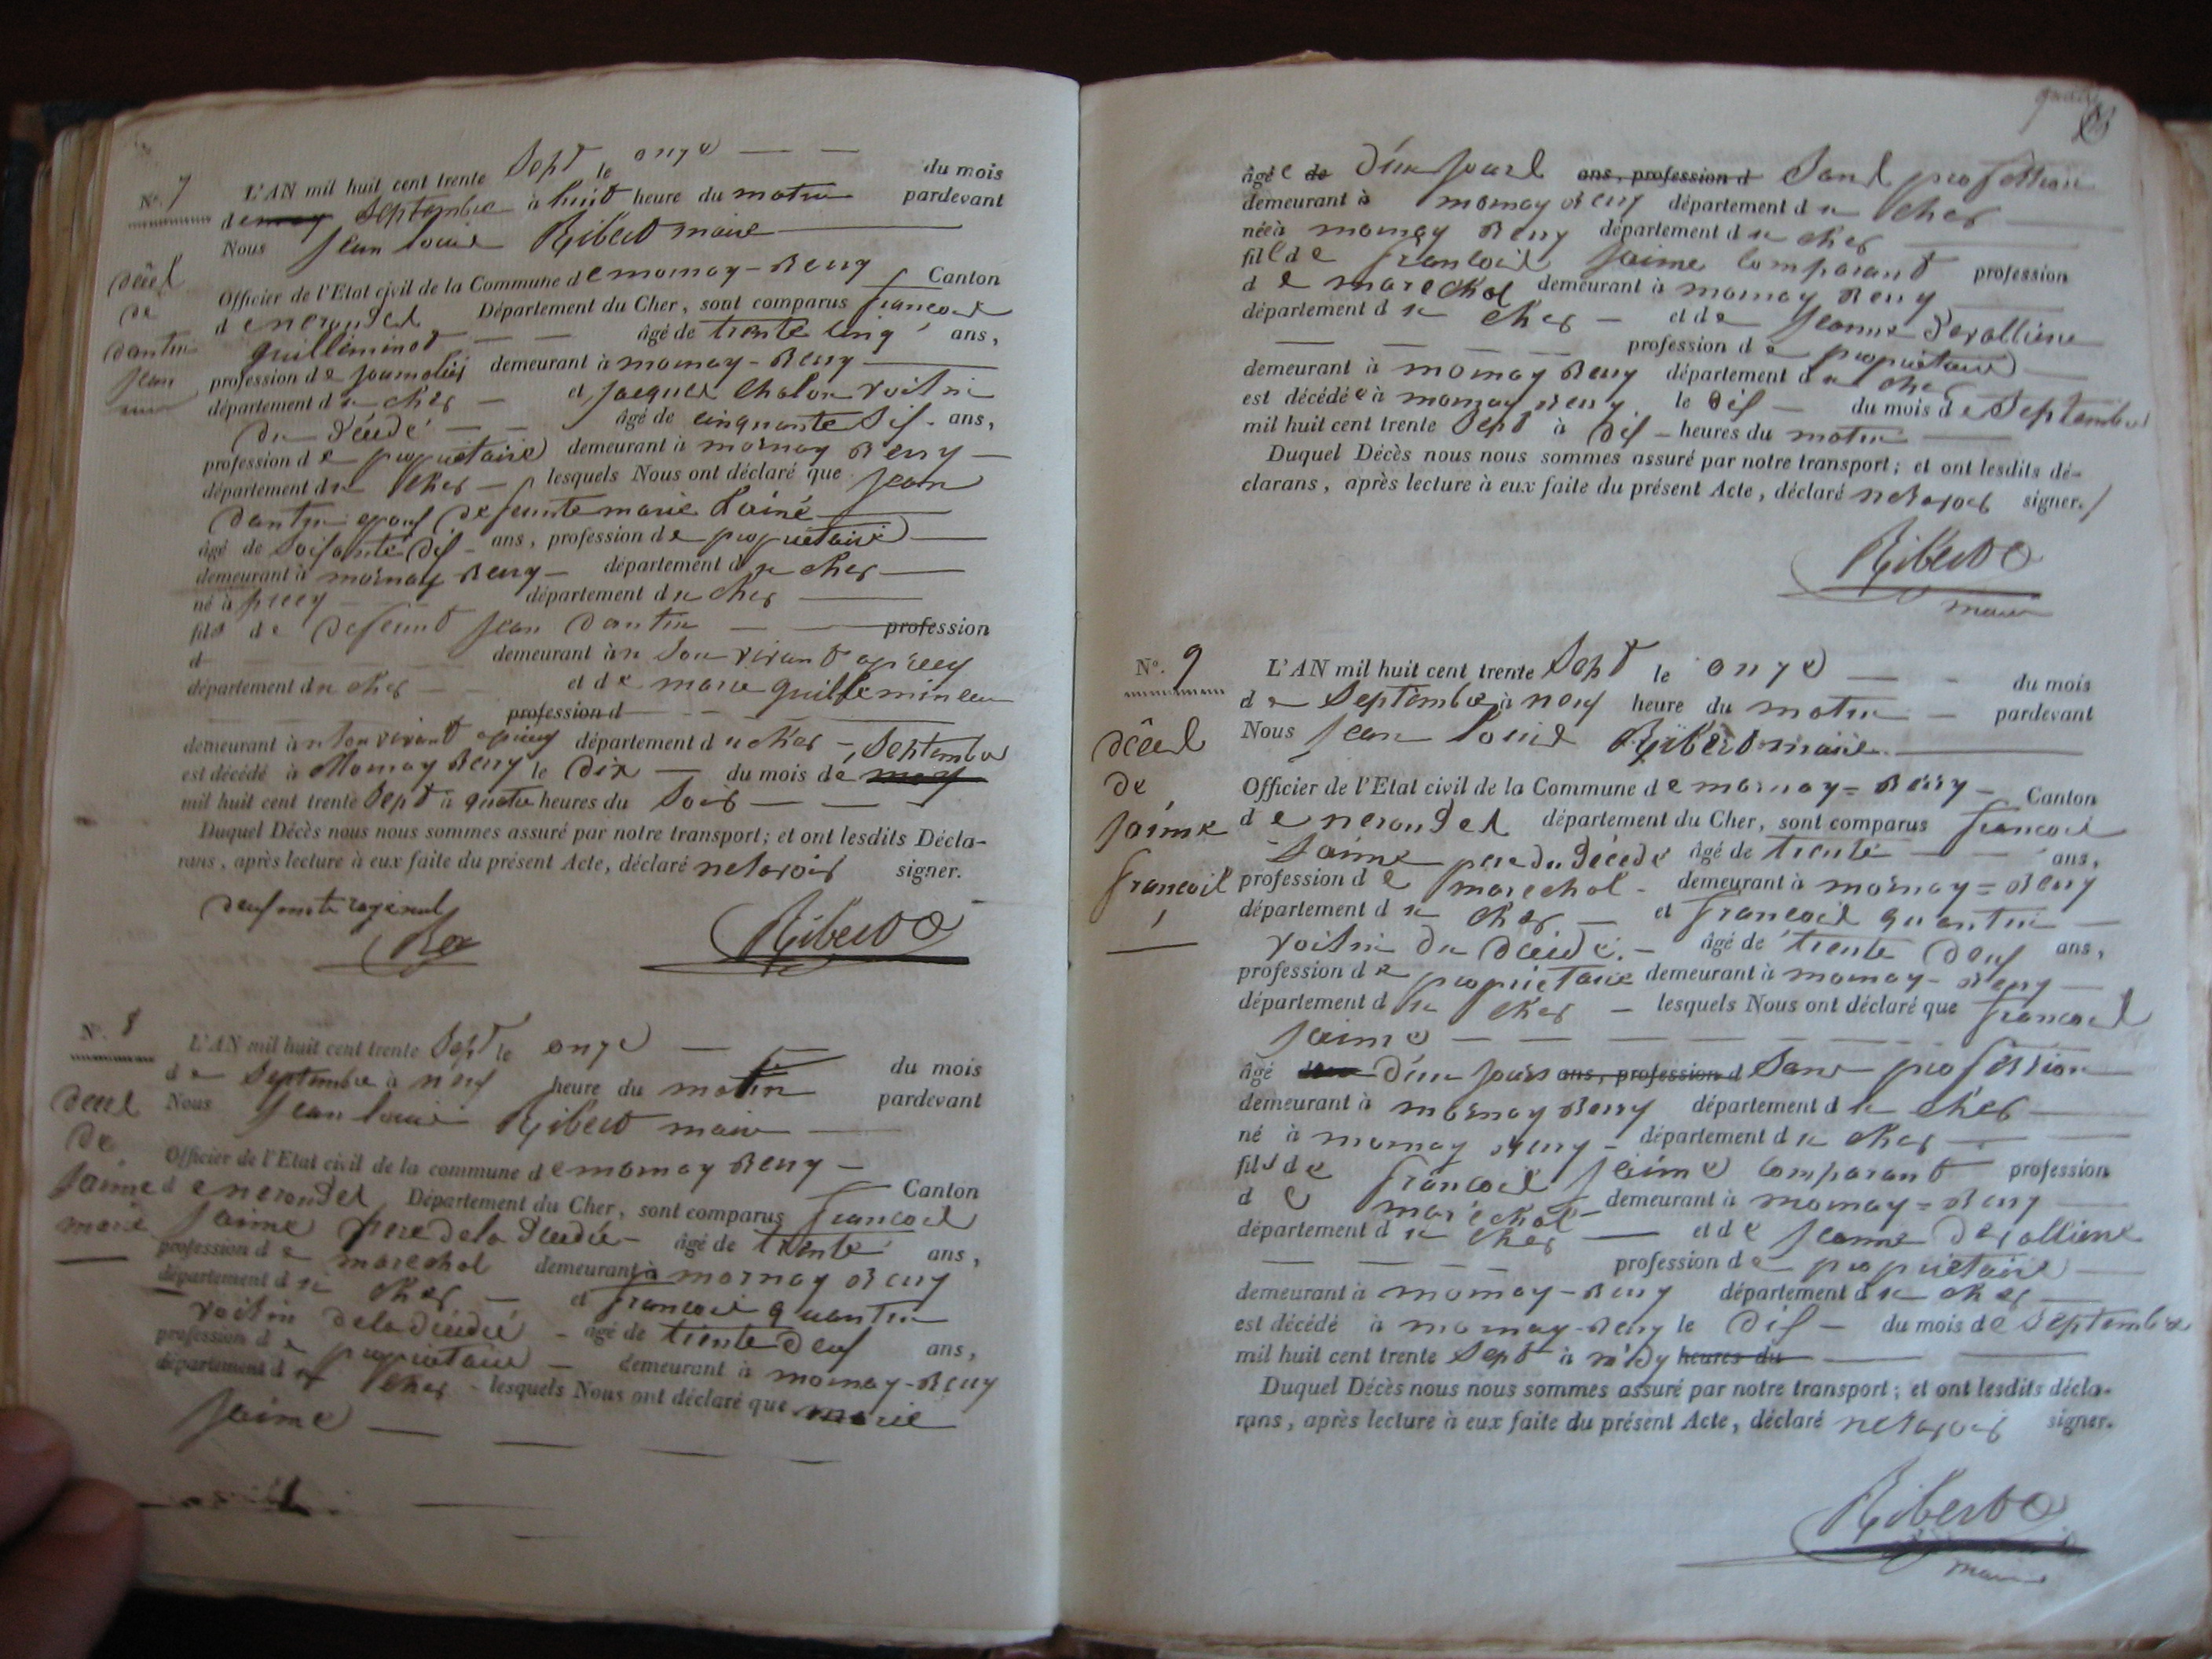 N.° 7
L'AN mil huit cent trente Sept le onze du mois
de may Septembre à huit heure du matin pardevant
Nous Jean louis Ribert maire
décel
de
dantin
Jean
Officier de l'Etat civil de la Commune de mornay-Berry Canton
de nerondel Département du Cher, sont comparus francoil
guilleminot âgé de trente cinq ans,
profession de journaliés demeurant à mornay-Berry
département du cher et Jacques Chalon voisin
du décédé âgé de cinquante Sis ans,
profession de propriétaire demeurant à mornay Berry
département du Cher lesquels Nous ont déclaré que Jean
dantin epouf de feunte marie Lainé
âgé de Soisante dis ans, profession de propriétaire
demeurant à mornay Berry département du cher
né à precy département du cher
fils de defeunt Jean dantin profession
d demeurant àn Son vivant aprecy
département du cher et de marie guillemineau
profession d
demeurant àn Son vivant aprecy département du cher Septembre
est décédé à Mornay Berry le dix du mois de may
mil huit cent trente Sept à quatre heures du Soir
Duquel Décès nous nous sommes assuré par notre transport; et ont lesdits Décla-
rans, après lecture à eux faite du présent Acte, déclaré ne Savoir signer.
deuf mots rayé nul
Ribert
N.° 8
L'AN mil huit cent trente Sept le onze du mois
de Septembre à neuf heure du matin pardevant
Nous Jean louis Ribert maire
décel
de
Jaime
marie
Officier de l'Etat civil de la commune de mornay Berry Canton
de nerondel Département du Cher, sont comparus francoil
Jaime pere de la décédée âgé de trente ans,
profession de marechal demeurant à mornay Berry
département du cher et francoil quantin
voisin de la décédé âgé de trente deuf ans,
profession de propriétaire demeurant à mornay-Berry
département du Cher lesquels Nous ont déclaré que marie
Jaime
âgée de d'un jourd ans, profession d Sans profession
demeurant à mornay Berry département du Cher
née à mornay Berry département du cher
fille de francoil Jaime comparant profession
de marechal demeurant à mornay Berry
département du cher et de Jeanne devalliere
profession de propriétaire
demeurant à mornay Berry département du cher
est décédée à mornay Berry le dis du mois de Septembre
mil huit cent trente Sept à dis heures du matin
Duquel Décès nous nous sommes assuré par notre transport; et ont lesdits dé-
clarans, après lecture à eux faite du présent Acte, déclaré ne Savoir signer.
Ribert
maire
N.° 9
L'AN mil huit cent trente Sept le onze du mois
de Septembre à neuf heure du matin pardevant
Nous Jean louis Ribert maire
décel
de
Jaime
francoil
Officier de l'Etat civil de la Commune de mornay=Berry Canton
de nerondel département du Cher, sont comparus francoil
Jaime pere du décédé âgé de trente ans,
profession de marechal demeurant à mornay=Berry
département du cher et francoil quantin
voisin du décédé. âgé de trente deuf ans,
profession de propriétaire demeurant à mornay-Berry
département du Cher lesquels Nous ont déclaré que francoil
Jaime
âgé d'un jours ans, profession d Sans profession
demeurant à mornay Berry département du cher
né à mornay Berry département du cher
fils de francoil Jaime comparant profession
de maréchal demeurant à mornay=Berry
département du cher et de Jeanne devalliere
profession de propriétaire
demeurant à mornay-Berry département du cher
est décédé à mornay-Berry le dis du mois de Septembre
mil huit cent trente Sept à midy heures du
Duquel Décès nous nous sommes assuré par notre transport; et ont lesdits décla-
rans, après lecture à eux faite du présent Acte, déclaré ne Savoir signer.
Ribert
maire